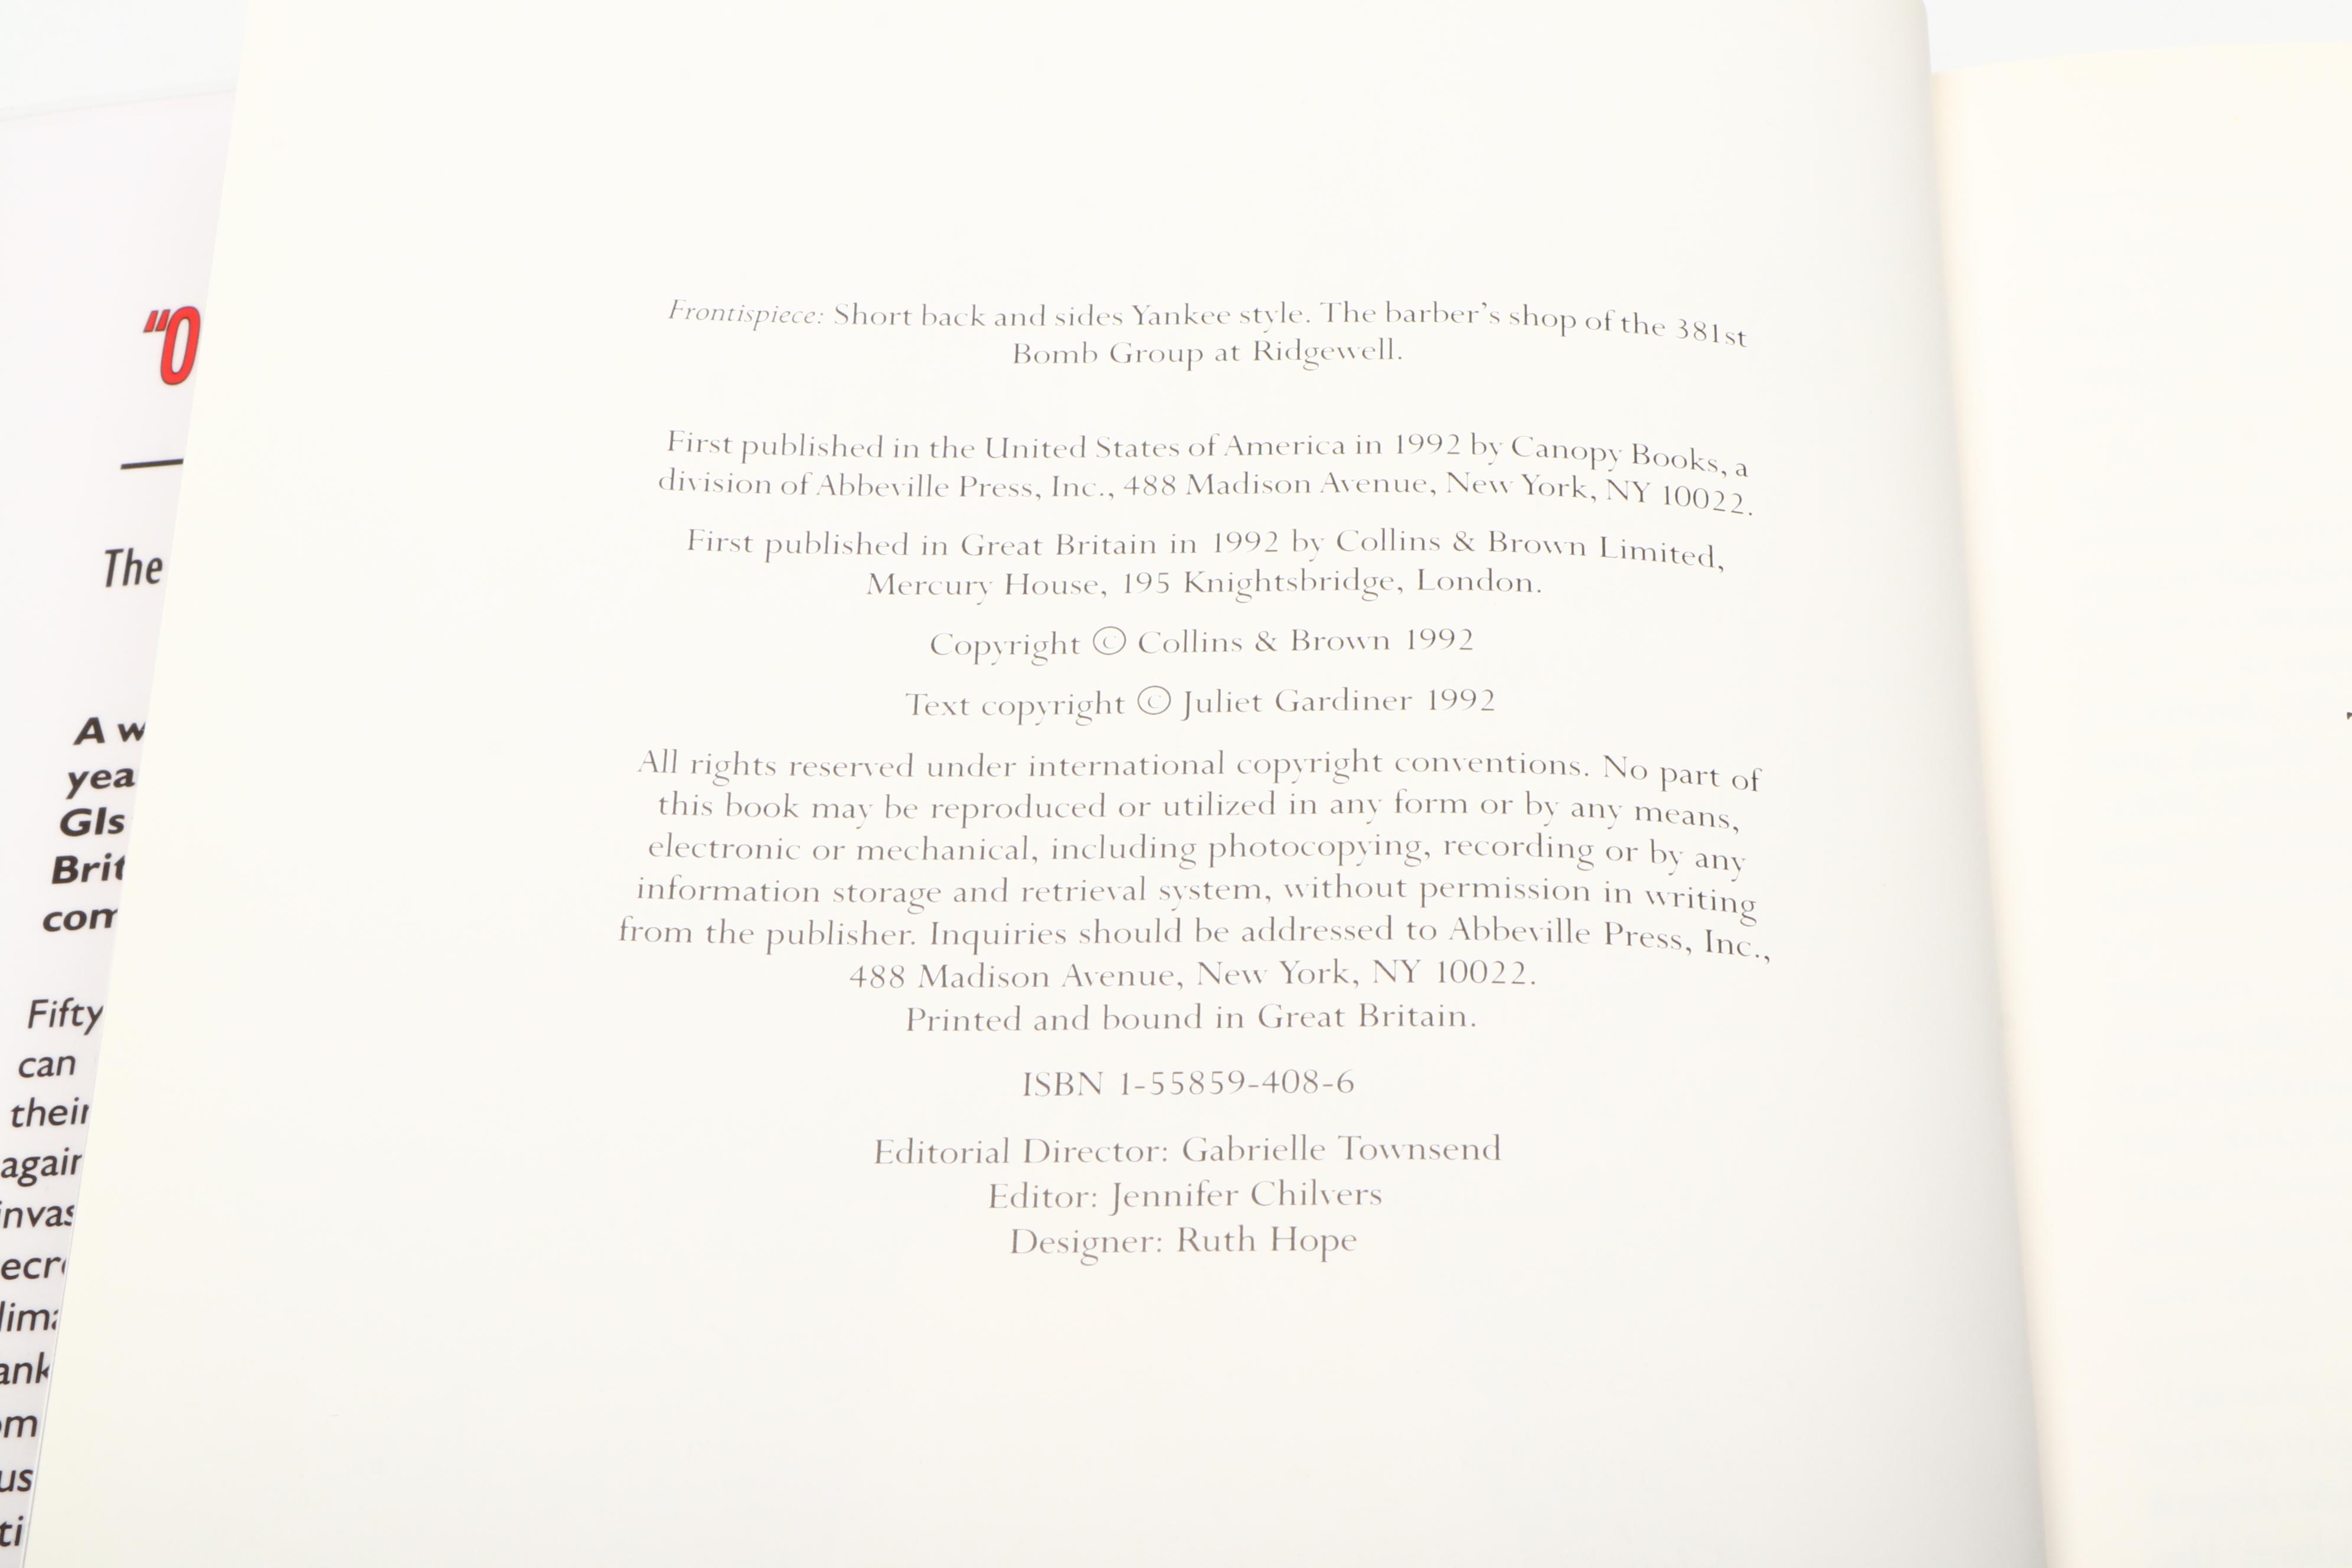 "O
The
A w
yea
GIs
Brit
com
Fifty
can
their
again
invas
ecr
lima
ank
om
us
ti
Frontispiece: Short back and sides Yankee style. The barber's shop of the 381st
Bomb Group at Ridgewell.
First published in the United States of America in 1992 by Canopy Books, a
division of Abbeville Press, Inc., 488 Madison Avenue, New York, NY 10022.
First published in Great Britain in 1992 by Collins & Brown Limited,
Mercury House, 195 Knightsbridge, London.
Copyright © Collins & Brown 1992
Text copyright © Juliet Gardiner 1992
All rights reserved under international copyright conventions. No part of
this book may be reproduced or utilized in any form or by any means,
electronic or mechanical, including photocopying, recording or by any
information storage and retrieval system, without permission in writing
from the publisher. Inquiries should be addressed to Abbeville Press, Inc.,
488 Madison Avenue, New York, NY 10022.
Printed and bound in Great Britain.
ISBN 1-55859-408-6
Editorial Director: Gabrielle Townsend
Editor: Jennifer Chilvers
Designer: Ruth Hope